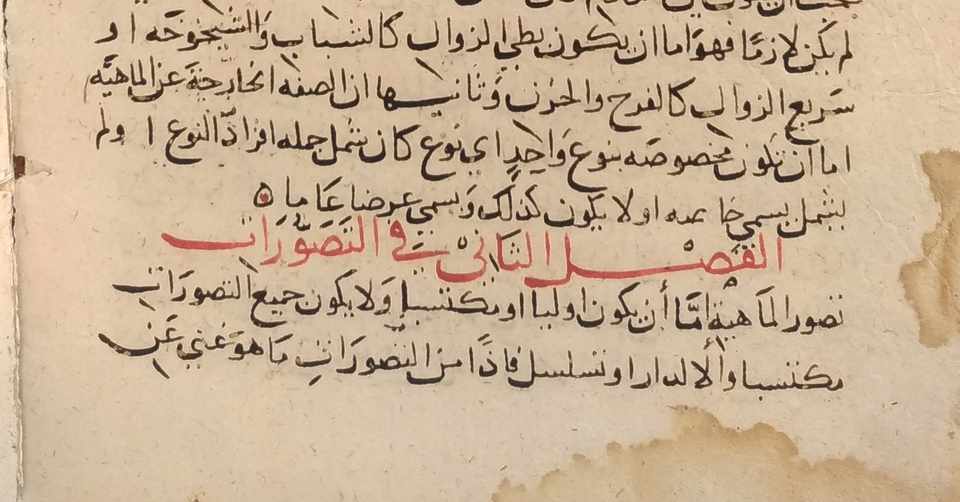 لم يكن لازما فهو اما ان يكون بطي الزوال كالشباب والشيخوخه او
سريع الزوال كالفرح والحزن وثانيها ان الصفه الخارجة عن الماهيه
اما ان تكون مخصوصه بنوع واحد اي نوع كان شمل جمله افراد النوع اولم
يشمل يسمى خاصه او لا يكون كذلك ويسمى عرضا عاما ه
الفصل الثاني في التصورات
تصور الماهية اما أن يكون اوليا او مكتسبا ولا يكون جميع التصورات
مكتسبا والا لدار او تسلسل فاذا من التصورات ما هو غني عن